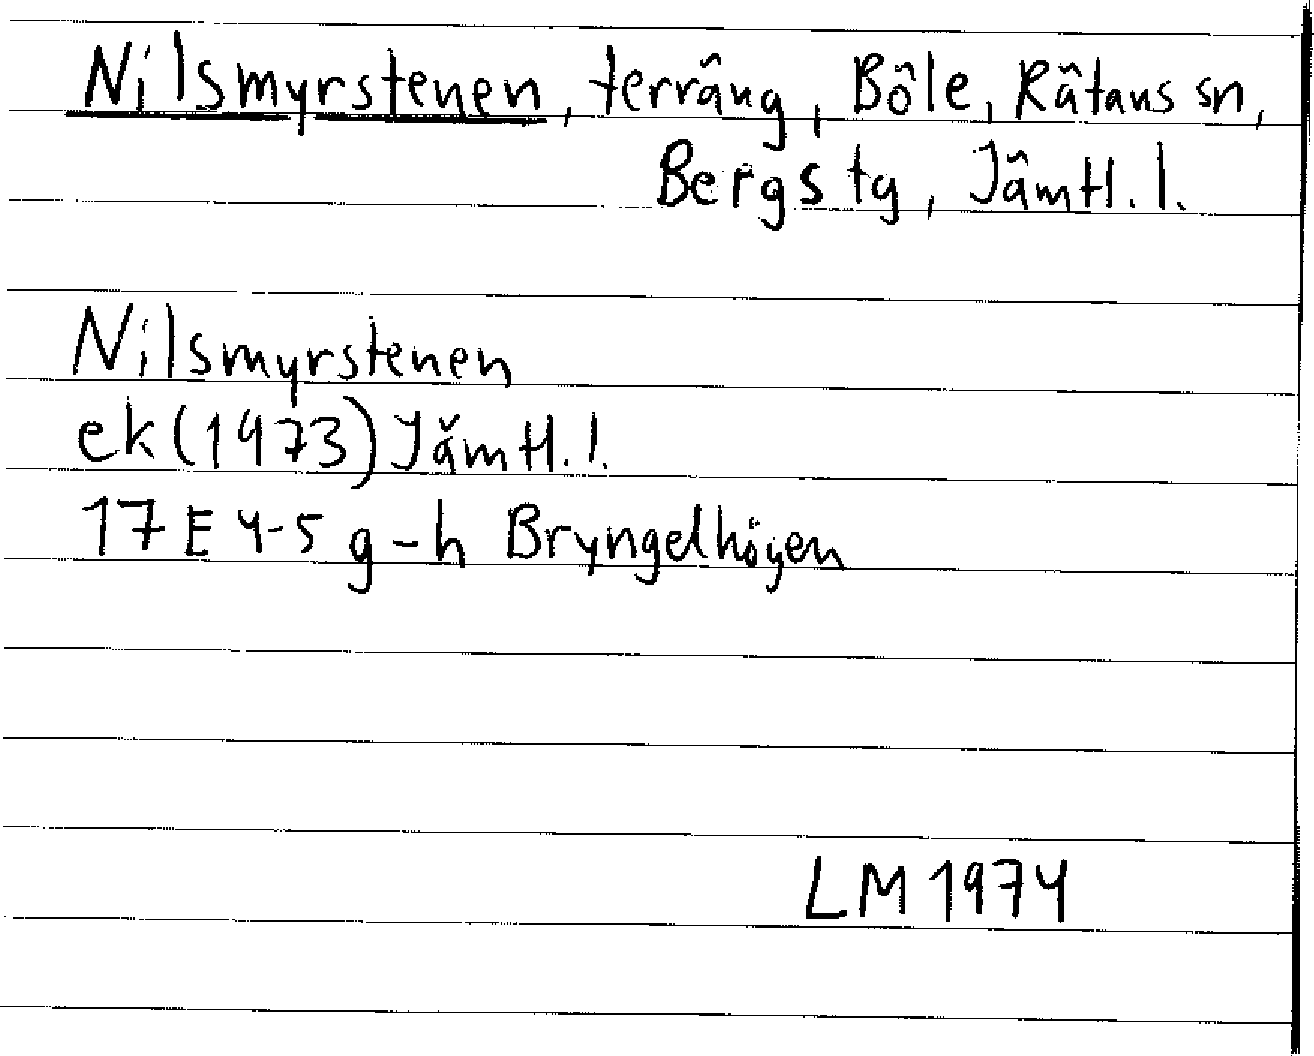 Nilsmyrstenen, terräng, Böle, Rätans sn,
Bergs tg, Jämtl. l.
Nilsmyrstenen
ek (1973) Jämtl. l.
17 E 4-5 g-h Bryngelhögen
LM 1974